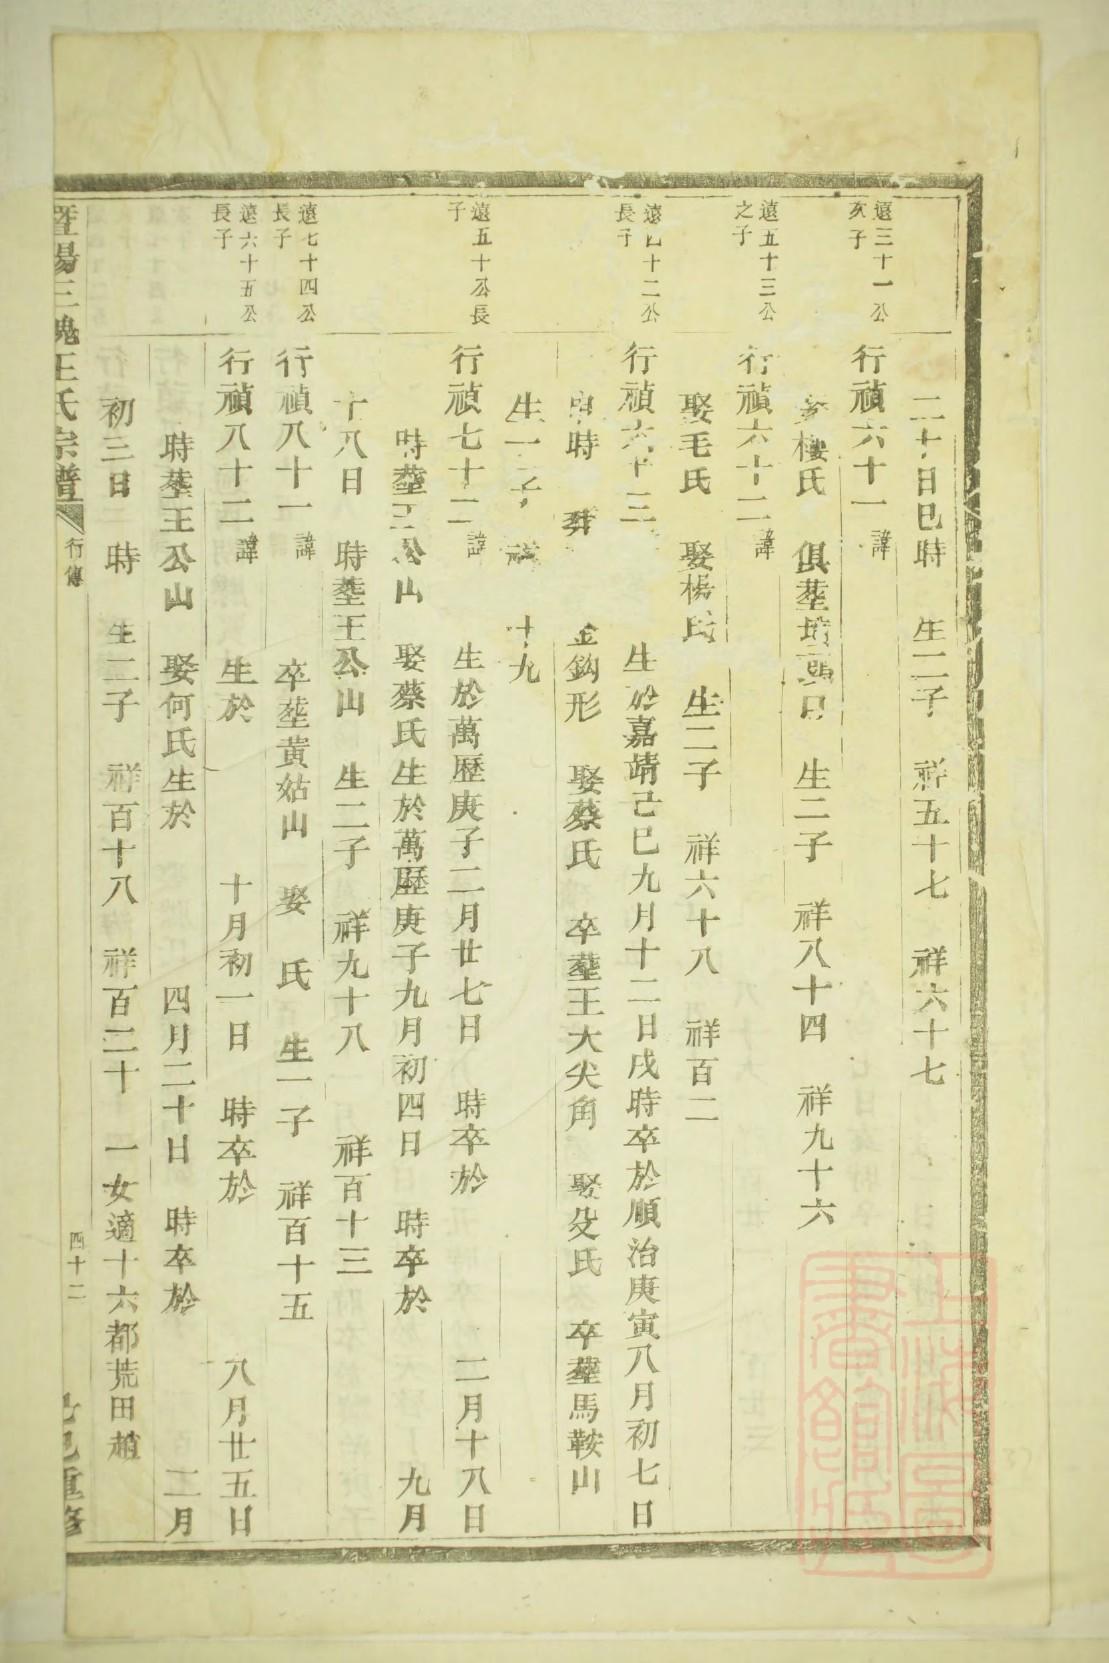 二十日巳時 生二子 祥五十七 祥六十七
遠三十一公
次子
行禎六十一 諱
娶樓氏 俱塟墳頭 生二子 祥八十四 祥九十六
遠五十三公
之子
行禎六十二 諱
娶毛氏 娶楊氏 生二子 祥六十八 祥百二
遠四十二公
長子
行禎六十三 生於嘉靖己巳九月十二日戌時卒於順治庚寅八月初七日
申時 葬 金鈎形 娶蔡氏 卒塟王大尖角 娶 氏 卒塟馬鞍山
生一子 祥 十九
遠五十公長
子
行禎七十二 諱 生於萬歷庚子二月廿七日 時卒於 二月十八日
時塟王公山 娶蔡氏生於萬歷庚子九月初四日 時卒於 九月
十八日 時塟王公山 生二子 祥九十八 祥百十三
遠七十四公
長子
行禎八十一 諱 卒塟黃姑山 娶 氏 生一子 祥百十五
遠六十五公
長子
行禎八十二 諱 生於 十月初一日 時卒於 八月廿五日
時塟王公山 娶何氏生於 四月二十日 時卒於 二月
初三日 時 生二子 祥百十八 祥百二十 一女適十六都荒田趙
暨陽三槐王氏宗譜 行傳 四十二 己巳重修
上海圖書館藏